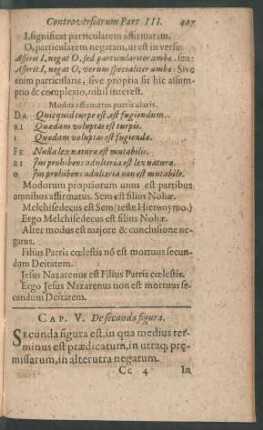 Controversiarum Part. III. 407
I, significat particularem affirmatam.
O, particularem negatam, ut est in versu:
Asserit I, negat O, sed particulariter ambo. seu:
Asserit I, negat O, verum specialiter ambo. Sive
enim particularis, sive propria sit hic assum-
ptio & complexio, nihil interest.
Modus affirmatus particularis.
DA Quicquid turpe est, est fugiendum.
RI Quædam voluptas est turpis.
I. Quædam voluptas est fugienda.
FE Nulla lex naturæ est mutabilis.
RI Jus prohibens adulteria est lex naturæ.
O Jus prohibens adulteria non est mutabile.
Modorum propriorum unus est partibus
omnibus affirmatus. Sem est filius Nohæ.
Melchisedecus est Sem (teste Hieronymo.)
Ergo Melchisedecus est filius Nohæ.
Alter modus est majore & conclusione ne-
gatus.
Filius Patris cœlestis nō est mortuus secun-
dum Deitatem.
Jesus Nazarenus est Filius Patris cœlestis.
Ergo Jesus Nazarenus non est mortuus se-
cundum Deitatem.
CAP. V. De secunda figura.
SEcunda figura est, in qua medius ter-
minus est prædicatum, in utraq; prę-
missarum, in alterutra negatum.
Cc 4 In